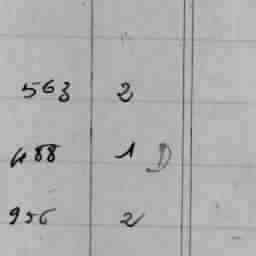 563 2
488 1 D
956 2